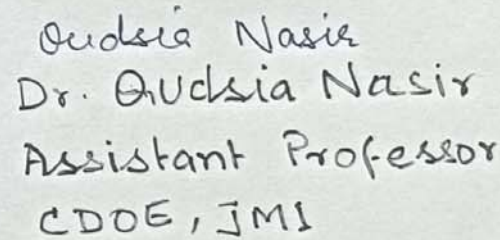 Qudsia Nasir
Dr. Qudsia Nasir
Assistant Professor
CDOE, JMI